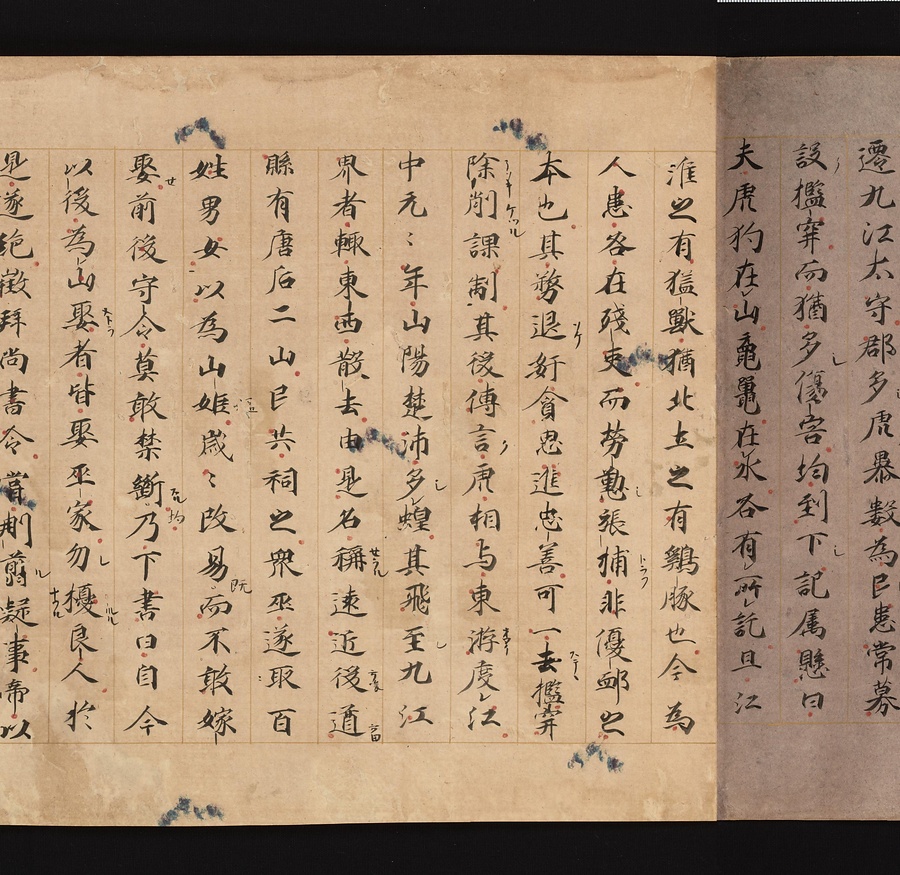 遷九江太守郡多虎暴數為民患常募
設檻穽而猶多傷害均到下記属懸曰
夫虎豹在山黿鼉在水各有所託且江
淮之有猛獸猶北土之有鷄豚也今為
人患咎在殘吏而勞勤張捕非優邺之
本也其務退姧貪思進忠善可一去檻穽
除削課制其後傳言虎相与東游度江
中元〻年山陽楚沛多蝗其飛至九江
界者輙東西散去由是名稱遠近後遒
縣有唐后二山民共祠之衆巫遂取百
姓男女以為山姬歳〻改易而不敢嫁
娶前後守令莫敢禁斷乃下書曰自今
以後為山娶者皆娶巫家勿擾良人於
是遂絶徴拜尚書令甞刪翦疑事帝以